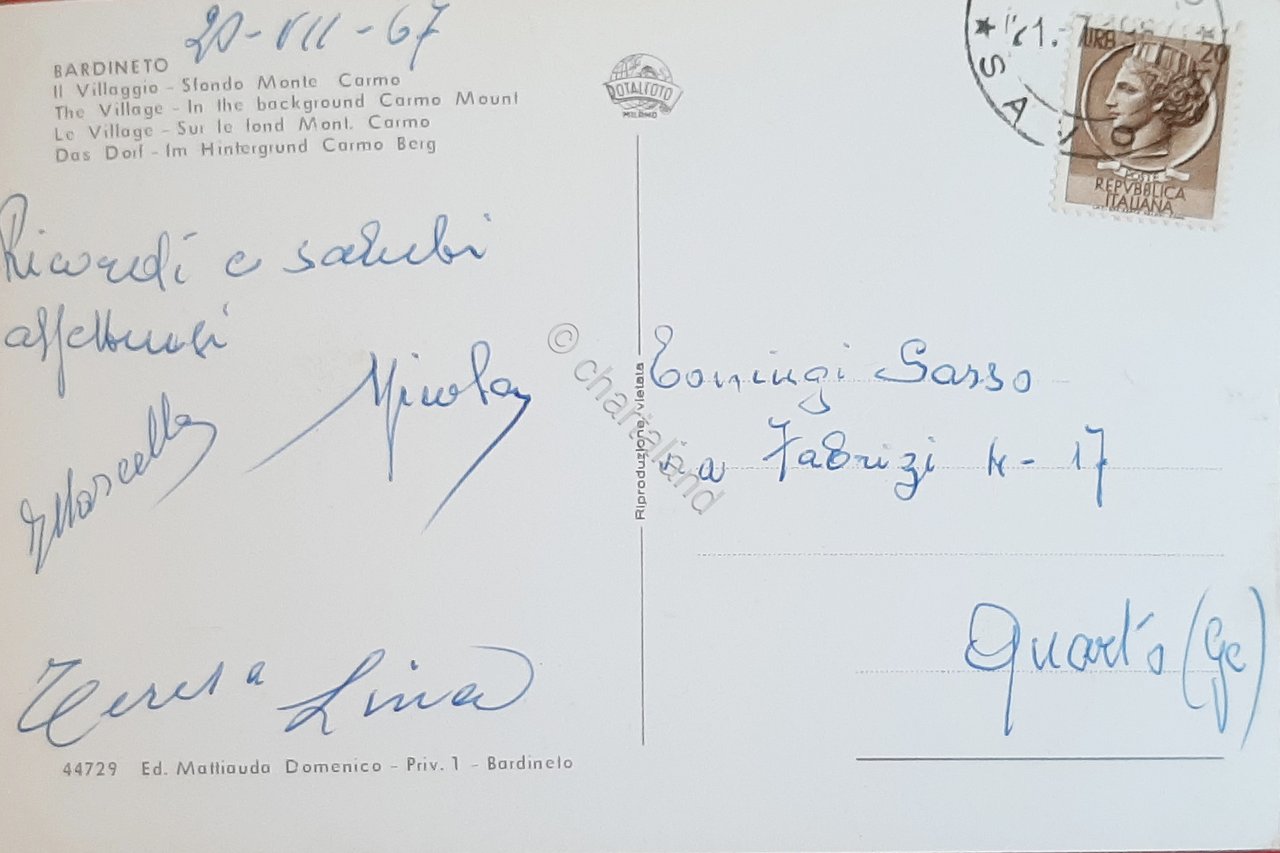 20-VII-67
BARDINETO
Il Villaggio - Sfondo Monte Carmo
The Village - In the background Carmo Mount
Le Village - Sur le fond Mont. Carmo
Das Dorf - Im Hintergrund Carmo Berg
ROTALFOTO
MILANO
20
POSTE
REPVBBLICA
ITALIANA
Ricordi e saluti
affettuosi
Marcella Nicola
Teresa Lina
44729 Ed. Mattiauda Domenico - Priv. 1 - Bardineto
Riproduzione vietata
© chartaland
Sasso
via Fabrizi N-17
Quarto (Ge)